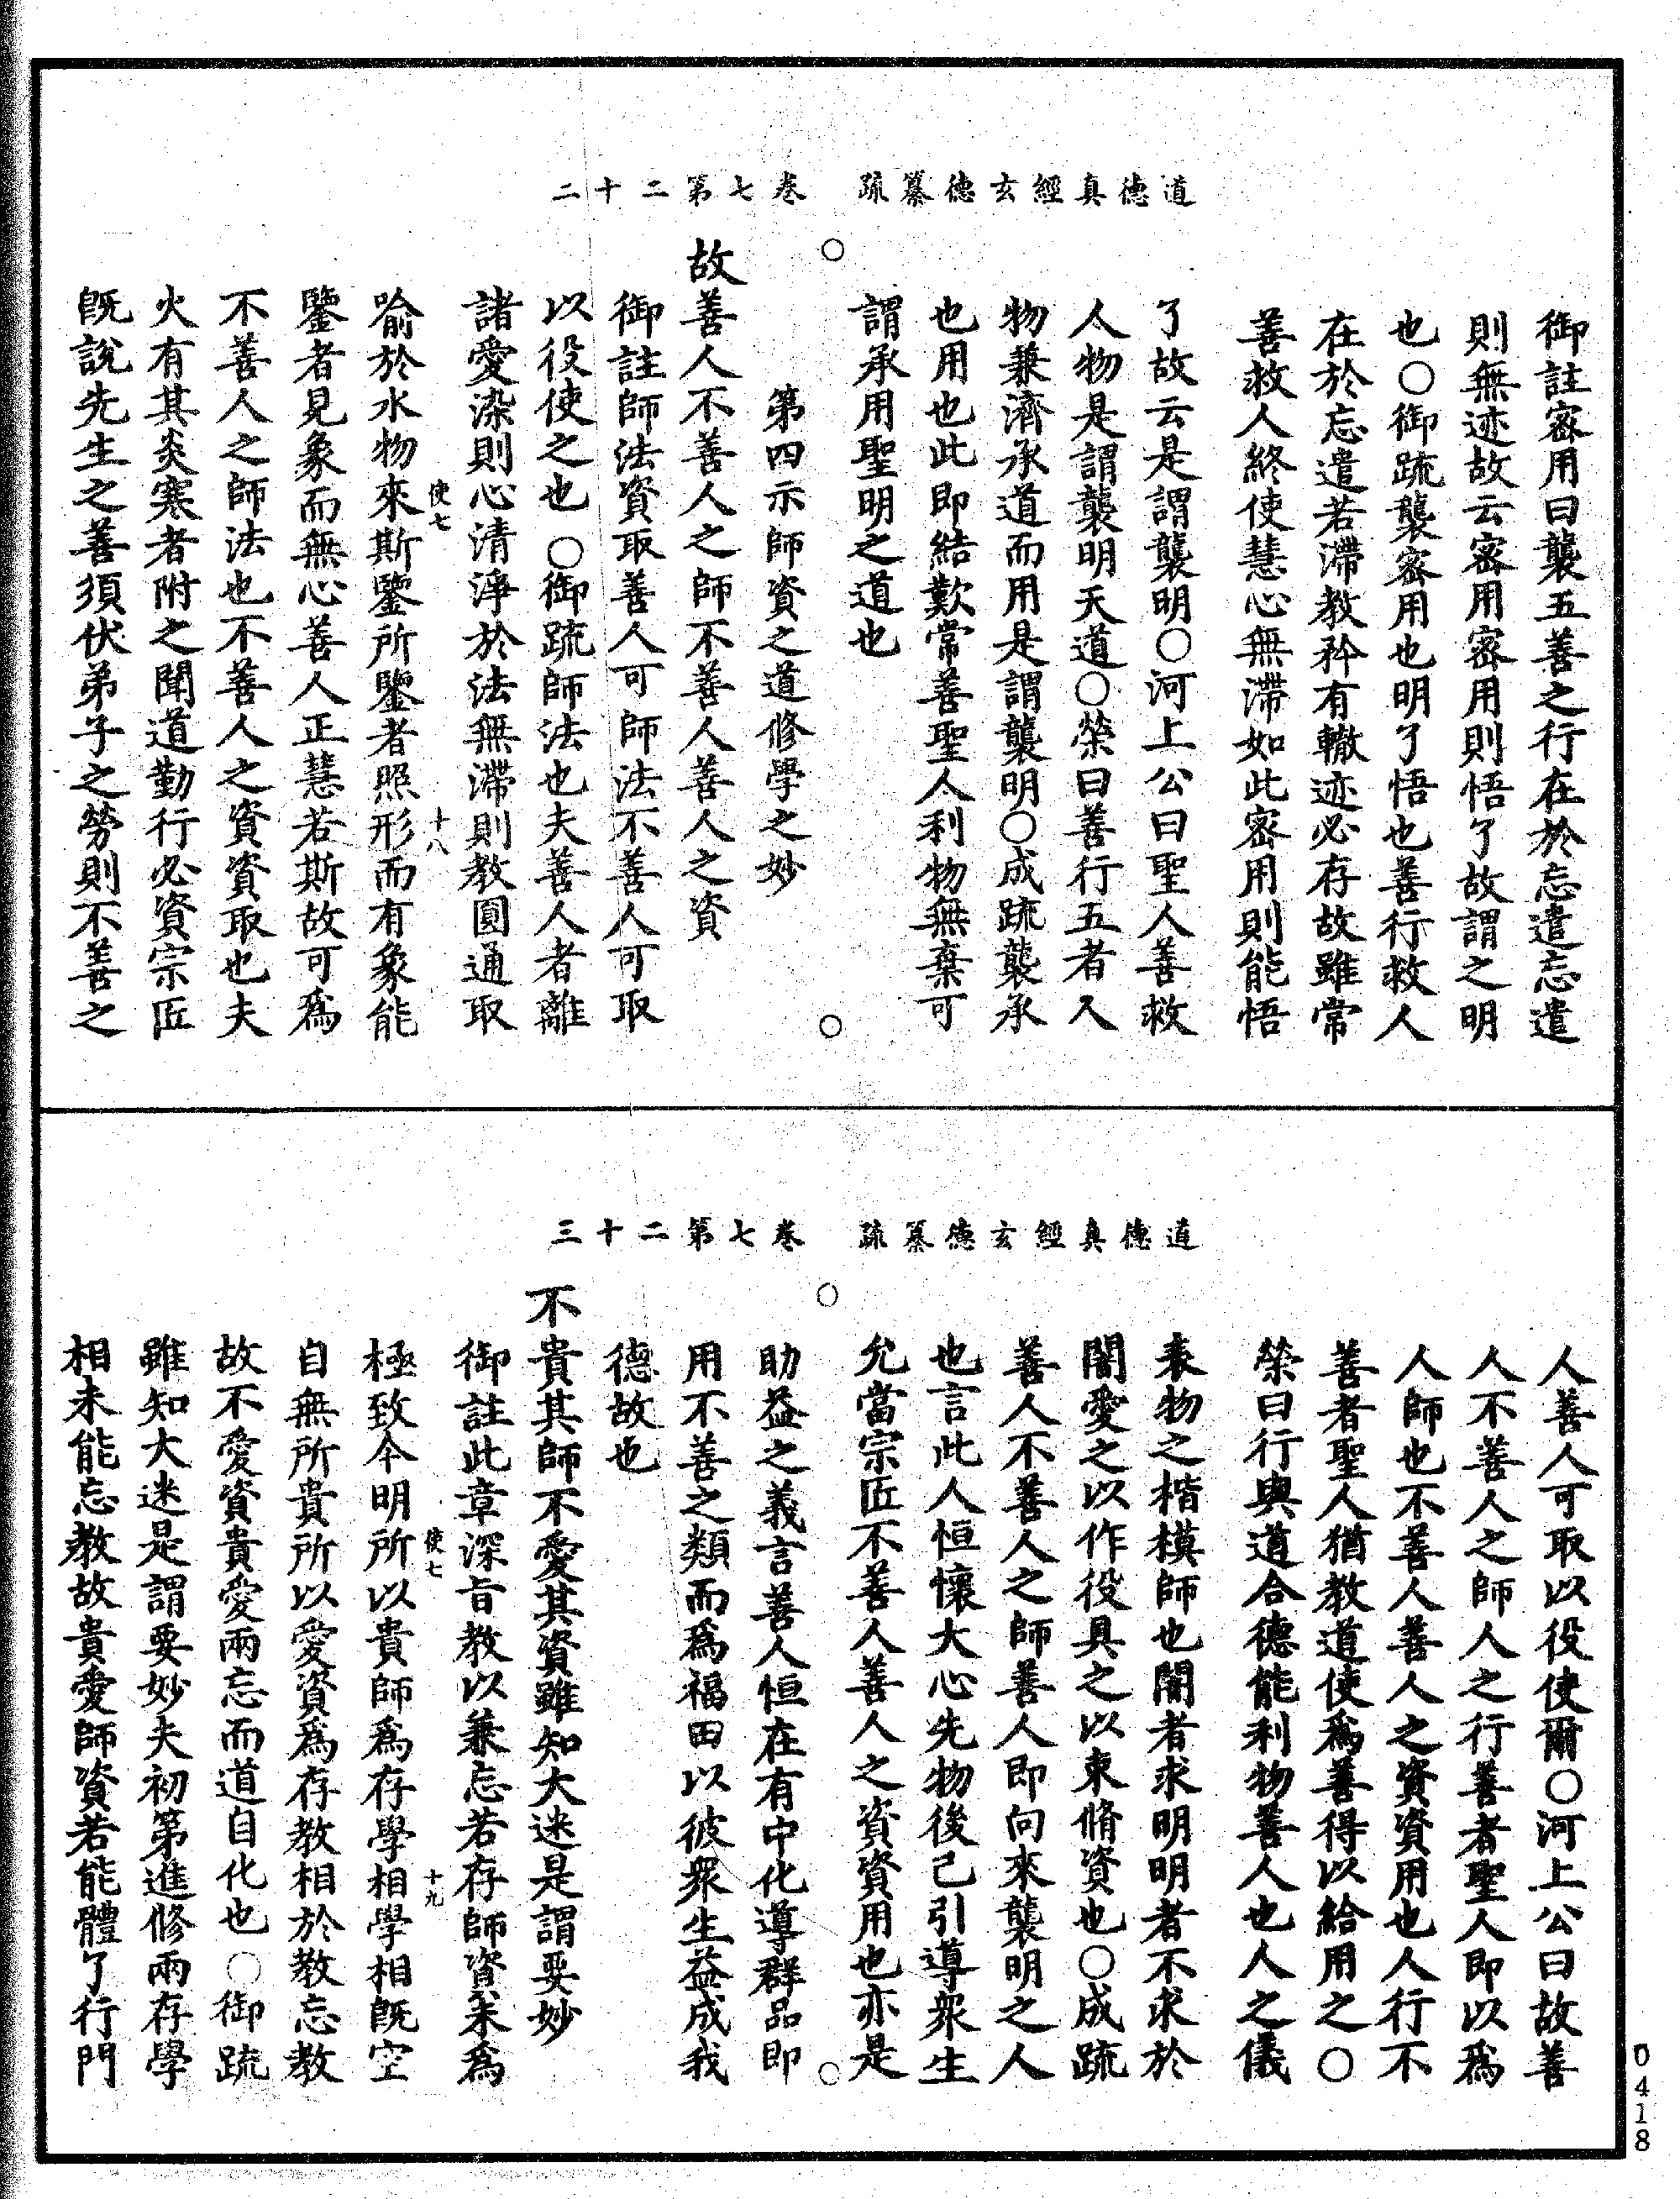 道德真經玄德纂疏　卷七第二十二
御註密用曰襲五善之行在於忘遣忘遣
則無迹故云密用密用則悟了故謂之明
也○御疏襲密用也明了悟也善行救人
在於忘遣若滯教矜有轍迹必存故雖常
善救人終使慧心無滯如此密用則能悟
了故云是謂襲明○河上公曰聖人善救
人物是謂襲明天道○榮曰善行五者人
物兼濟承道而用是謂襲明○成疏襲承
也用也此即結歎常善聖人利物無棄可
謂承用聖明之道也
○
第四示師資之道修學之妙
○
故善人不善人之師不善人善人之資
御註師法資取善人可師法不善人可取
以役使之也○御疏師法也夫善人者離
諸愛染則心清淨於法無滯則教圓通取
使七　十八
喻於水物來斯鑒所鑒者照形而有象能
鑒者見象而無心善人正慧若斯故可爲
不善人之師法也不善人之資資取也夫
火有其炎寒者附之聞道勤行必資宗匠
既說先生之善須伏弟子之勞則不善之
道德真經玄德纂疏　卷七第二十三
人善人可取以役使爾○河上公曰故善
人不善人之師人之行善者聖人即以爲
人師也不善人善人之資資用也人行不
善者聖人猶教道使爲善得以給用之○
榮曰行與道合德能利物善人也人之儀
表物之楷模師也闇者求明明者不求於
闇愛之以作役具之以束脩資也○成疏
善人不善人之師善人即向來襲明之人
也言此人恒懷大心先物後己引導衆生
允當宗匠不善人善人之資資用也亦是
○
○
助益之義言善人恒在有中化導群品即
用不善之類而爲福田以彼衆生益成我
德故也
不貴其師不愛其資雖知大迷是謂要妙
御註此章深旨教以兼忘若存師資未爲
使七　十九
極致今明所以貴師爲存學相學相既空
自無所貴所以愛資爲存教相於教忘教
故不愛資貴愛兩忘而道自化也○御疏
雖知大迷是謂要妙夫初第進修兩存學
相未能忘教故貴愛師資若能體了行門
0418